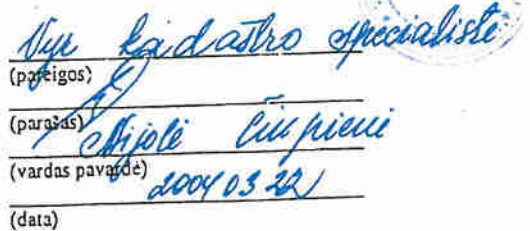 Vyr kadastro specialistė
(pareigos)
(parašas)
Nijolė
(vardas pavardė)
2004 03 22
(data)